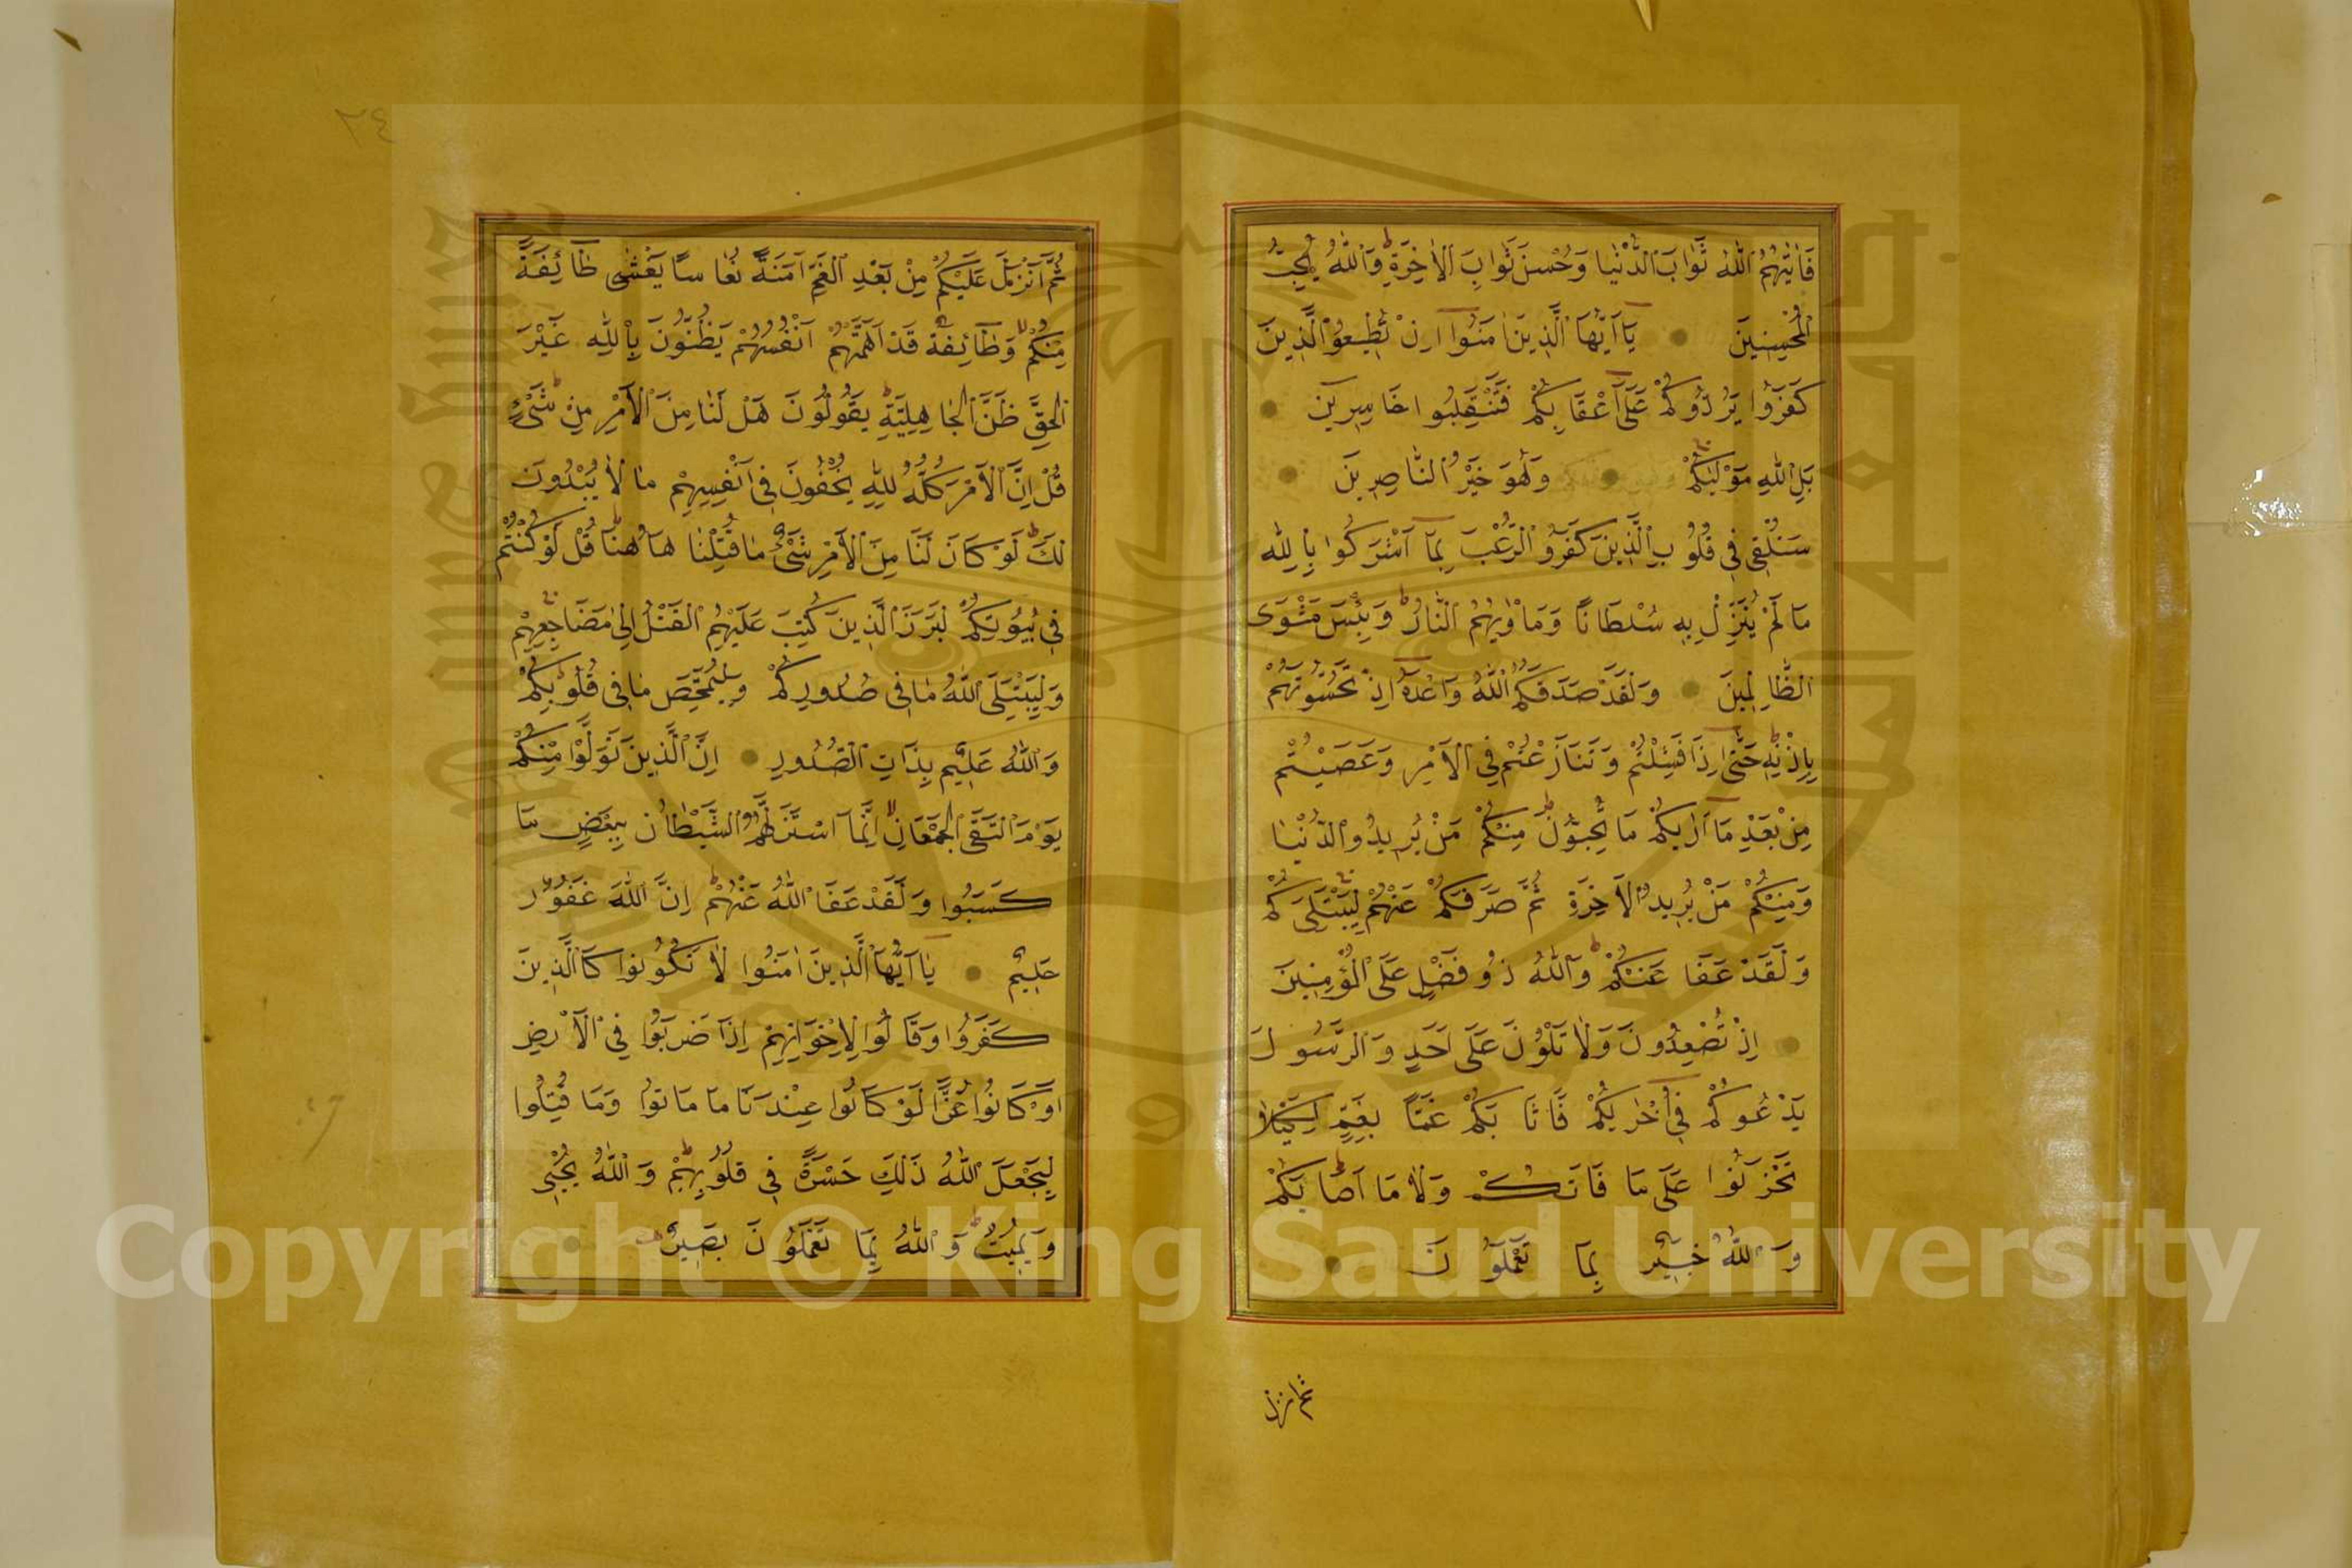 فَاٰتٰيهُمُ اللّٰهُ ثَوَابَ الدُّنْيَا وَحُسْنَ ثَوَابِ الْاٰخِرَةِ وَاللّٰهُ يُحِبُّ
الْمُحْسِنِينَ يَا اَيُّهَا الَّذِينَ اٰمَنُوا اِنْ تُطِيعُوا الَّذِينَ
كَفَرُوا يَرُدُّوكُمْ عَلَى اَعْقَابِكُمْ فَتَنْقَلِبُوا خَاسِرِينَ
بَلِ اللّٰهُ مَوْلٰيكُمْ وَهُوَ خَيْرُ النَّاصِرِينَ
سَنُلْقِى فِى قُلُوبِ الَّذِينَ كَفَرُوا الرُّعْبَ بِمَا اَشْرَكُوا بِاللّٰهِ
مَا لَمْ يُنَزِّلْ بِهِ سُلْطَانًا وَمَاْوٰيهُمُ النَّارُ وَبِئْسَ مَثْوَى
الظَّالِمِينَ وَلَقَدْ صَدَقَكُمُ اللّٰهُ وَعْدَهُ اِذْ تَحُسُّونَهُمْ
بِاِذْنِهِ حَتَّى اِذَا فَشِلْتُمْ وَتَنَازَعْتُمْ فِى الْاَمْرِ وَعَصَيْتُمْ
مِنْ بَعْدِ مَا اَرٰيكُمْ مَا تُحِبُّونَ مِنْكُمْ مَنْ يُرِيدُ الدُّنْيَا
وَمِنْكُمْ مَنْ يُرِيدُ الْاٰخِرَةَ ثُمَّ صَرَفَكُمْ عَنْهُمْ لِيَبْتَلِيَكُمْ
وَلَقَدْ عَفَا عَنْكُمْ وَاللّٰهُ ذُو فَضْلٍ عَلَى الْمُؤْمِنِينَ
اِذْ تُصْعِدُونَ وَلَا تَلْوُنَ عَلَى اَحَدٍ وَالرَّسُولُ
يَدْعُوكُمْ فِى اُخْرٰيكُمْ فَاَثَابَكُمْ غَمًّا بِغَمٍّ لِكَيْلَا
تَحْزَنُوا عَلَى مَا فَاتَكُمْ وَلَا مَا اَصَابَكُمْ
وَاللّٰهُ خَبِيرٌ بِمَا تَعْمَلُونَ
ثم انزل
٢٤
ثُمَّ اَنْزَلَ عَلَيْكُمْ مِنْ بَعْدِ الْغَمِّ اَمَنَةً نُعَاسًا يَغْشٰى طَائِفَةً
مِنْكُمْ وَطَائِفَةٌ قَدْ اَهَمَّتْهُمْ اَنْفُسُهُمْ يَظُنُّونَ بِاللّٰهِ غَيْرَ
الْحَقِّ ظَنَّ الْجَاهِلِيَّةِ يَقُولُونَ هَلْ لَنَا مِنَ الْاَمْرِ مِنْ شَىْءٍ
قُلْ اِنَّ الْاَمْرَ كُلَّهُ لِلّٰهِ يُخْفُونَ فِى اَنْفُسِهِمْ مَا لَا يُبْدُونَ
لَكَ لَوْ كَانَ لَنَا مِنَ الْاَمْرِ شَىْءٌ مَا قُتِلْنَا هَاهُنَا قُلْ لَوْ كُنْتُمْ
فِى بُيُوتِكُمْ لَبَرَزَ الَّذِينَ كُتِبَ عَلَيْهِمُ الْقَتْلُ اِلٰى مَضَاجِعِهِمْ
وَلِيَبْتَلِىَ اللّٰهُ مَا فِى صُدُورِكُمْ وَلِيُمَحِّصَ مَا فِى قُلُوبِكُمْ
وَاللّٰهُ عَلِيمٌ بِذَاتِ الصُّدُورِ اِنَّ الَّذِينَ تَوَلَّوْا مِنْكُمْ
يَوْمَ الْتَقَى الْجَمْعَانِ اِنَّمَا اسْتَزَلَّهُمُ الشَّيْطَانُ بِبَعْضِ مَا
كَسَبُوا وَلَقَدْ عَفَا اللّٰهُ عَنْهُمْ اِنَّ اللّٰهَ غَفُورٌ
حَلِيمٌ يَا اَيُّهَا الَّذِينَ اٰمَنُوا لَا تَكُونُوا كَالَّذِينَ
كَفَرُوا وَقَالُوا لِاِخْوَانِهِمْ اِذَا ضَرَبُوا فِى الْاَرْضِ
اَوْ كَانُوا غُزًّى لَوْ كَانُوا عِنْدَنَا مَا مَاتُوا وَمَا قُتِلُوا
لِيَجْعَلَ اللّٰهُ ذٰلِكَ حَسْرَةً فِى قُلُوبِهِمْ وَاللّٰهُ يُحْيِى
وَيُمِيتُ وَاللّٰهُ بِمَا تَعْمَلُونَ بَصِيرٌ
Copyright © King Saud University